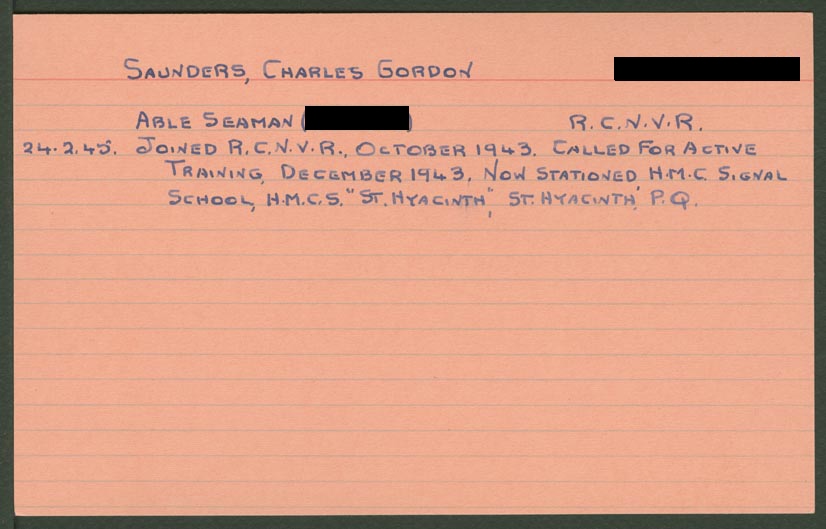 SAUNDERS, CHARLES GORDON
ABLE SEAMAN ( ) R.C.N.V.R.
24.2.45. JOINED R.C.N.V.R., OCTOBER 1943. CALLED FOR ACTIVE
TRAINING, DECEMBER 1943. NOW STATIONED H.M.C. SIGNAL
SCHOOL, H.M.C.S. "ST. HYACINTH", ST. HYACINTH, P.Q.